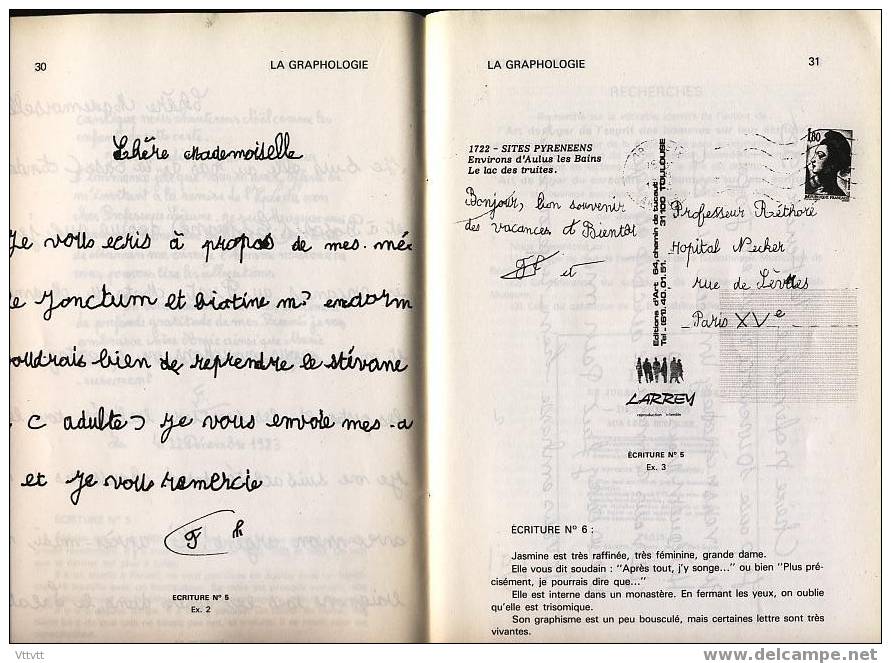 30
LA GRAPHOLOGIE
Chère Mademoiselle
Je vous ecris à propos de mes mé
e Jonctum et biotine m' endorm
oudrais bien de reprendre le stévane
c adulte) Je vous envoie mes a
et Je vous remercie
ECRITURE N° 5
Ex. 2
LA GRAPHOLOGIE
31
1722 - SITES PYRENEENS
Environs d'Aulus les Bains
Le lac des truites.
Bonjour, bon souvenir
des vacances et Bientot
et
Editions d'Art 64, chemin de tucaut 31100 TOULOUSE
Tél. (61) 40.01.51.
1,80
REPUBLIQUE FRANÇAISE
Professeur Réthoré
Hopital Necker
rue de Sèvres
Paris XVe
LARREY
reproduction interdite
ÉCRITURE N° 5
Ex. 3
ÉCRITURE N° 6 :
Jasmine est très raffinée, très féminine, grande dame.
Elle vous dit soudain : "Après tout, j'y songe..." ou bien "Plus pré-
cisément, je pourrais dire que..."
Elle est interne dans un monastère. En fermant les yeux, on oublie
qu'elle est trisomique.
Son graphisme est un peu bousculé, mais certaines lettre sont très
vivantes.
Vttvtt
delcampe.net